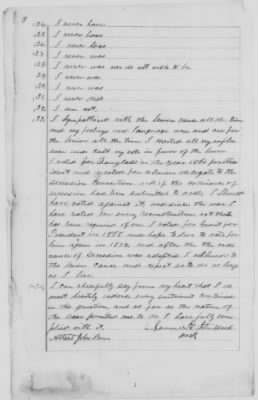 3
I never have
I never have
I never was
I never was
I never was nor do not wish to be
I never was
I never was
I never did
I am not.
I sympathized with the Union cause all the time
and my feelings and language was and are for
the Union all the time I exerted all my influ
ence and cast my vote in favor of the Union
I voted for Douglass in the year 1860 for Presi
dent and voted for Union delegate to the
secession convention and if the ordinance of
secession had been submitted to vote I should
have voted against it, and since the war I
have voted for every reconstruction act that
has been required of me I voted for Grant for
President in 1868 and hope to live to vote for
him again in 1872 and after the the ordi
nance of Secession was adopted I adhered to
the Union Cause and expect to do so as long
as I live
I can cheerfully say from my heart that I do
most heartily endorse every sentiment contained
in the question, and as far as the nature of
the case permitted me to do I have fully com
plied with it.
Attest John